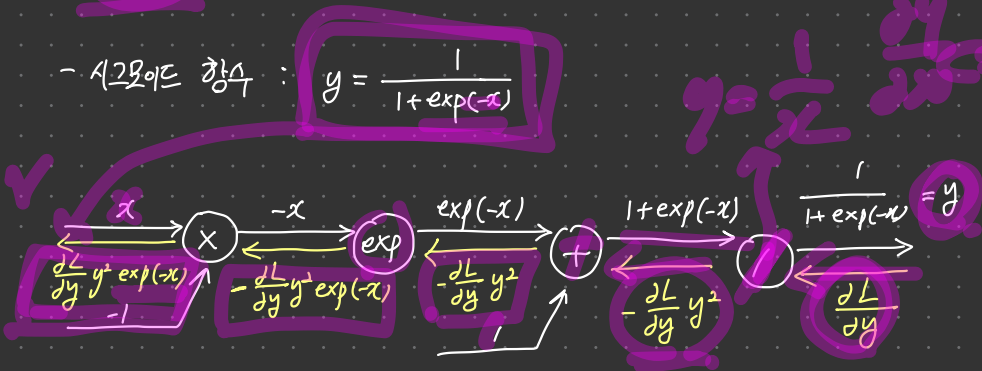 - 시그모이드 함수 : y = 1 / (1 + exp(-x))
y = 1/x
x
-x
exp(-x)
1 + exp(-x)
1 / (1 + exp(-x)) = y
×
exp
+
/
∂L/∂y y² exp(-x)
- ∂L/∂y y² exp(-x)
- ∂L/∂y y²
- ∂L/∂y y²
∂L/∂y
-1
1